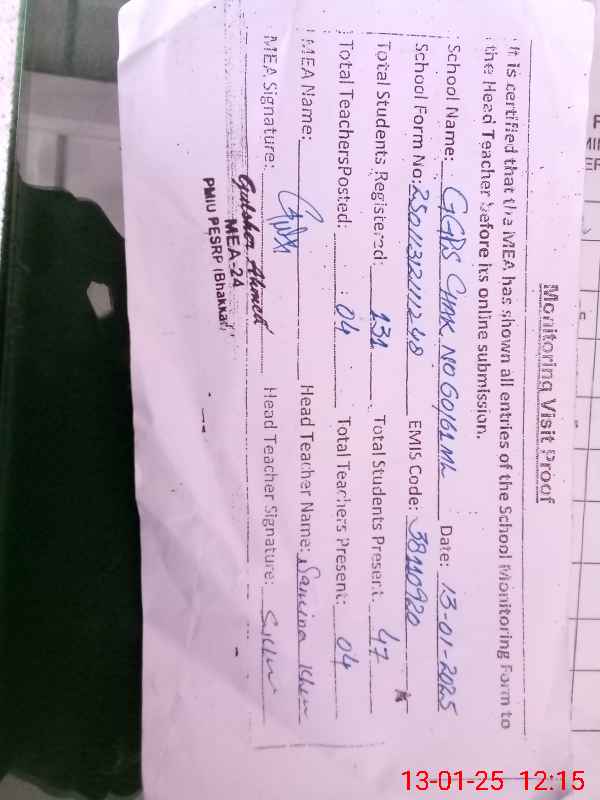 Monitoring Visit Proof
It is certified that the MEA has shown all entries of the School Monitoring Form to
the Head Teacher before its online submission.
School Name: GGPS CHAK NO 60/61 ML Date: 13-01-2025
School Form No: EMIS Code: 38110920
Total Students Registered: 131 Total Students Present: 47
Total Teachers Posted: 04 Total Teachers Present: 04
MEA Name: Head Teacher Name:
MEA Signature: Head Teacher Signature:
Gulsher Ahmed
MEA-24
PMIU PESRP (Bhakkar)
13-01-25 12:15